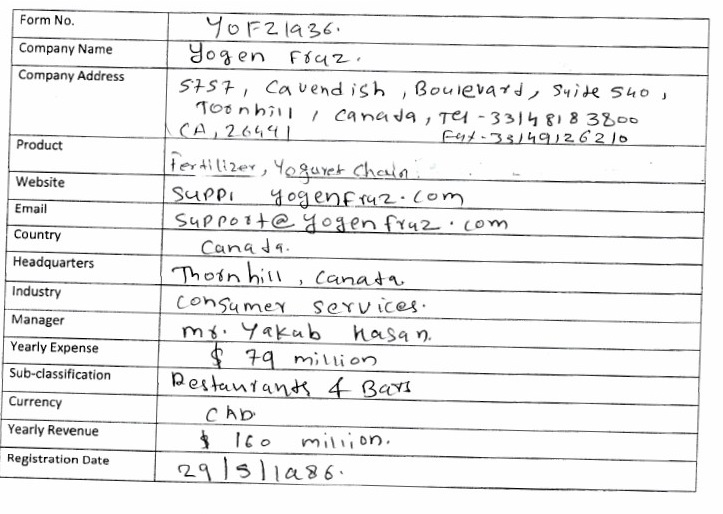 Form No. YOFZ1936.
Company Name Yogen Fruz.
Company Address 5757, Cavendish, Boulevard, Suite 540,
Toornhill, Canada, Tel - 33148183800
CA, 26441 Fax - 33149126210
Product Fertilizer, Yoguret Chain.
Website suppi yogenfruz.com
Email support@yogenfruz.com
Country Canada.
Headquarters Thornhill, Canada
Industry Consumer services.
Manager mr. Yakub Hasan.
Yearly Expense $ 79 million
Sub-classification Restaurants & Bars
Currency CAD.
Yearly Revenue $ 160 million.
Registration Date 29/5/1986.